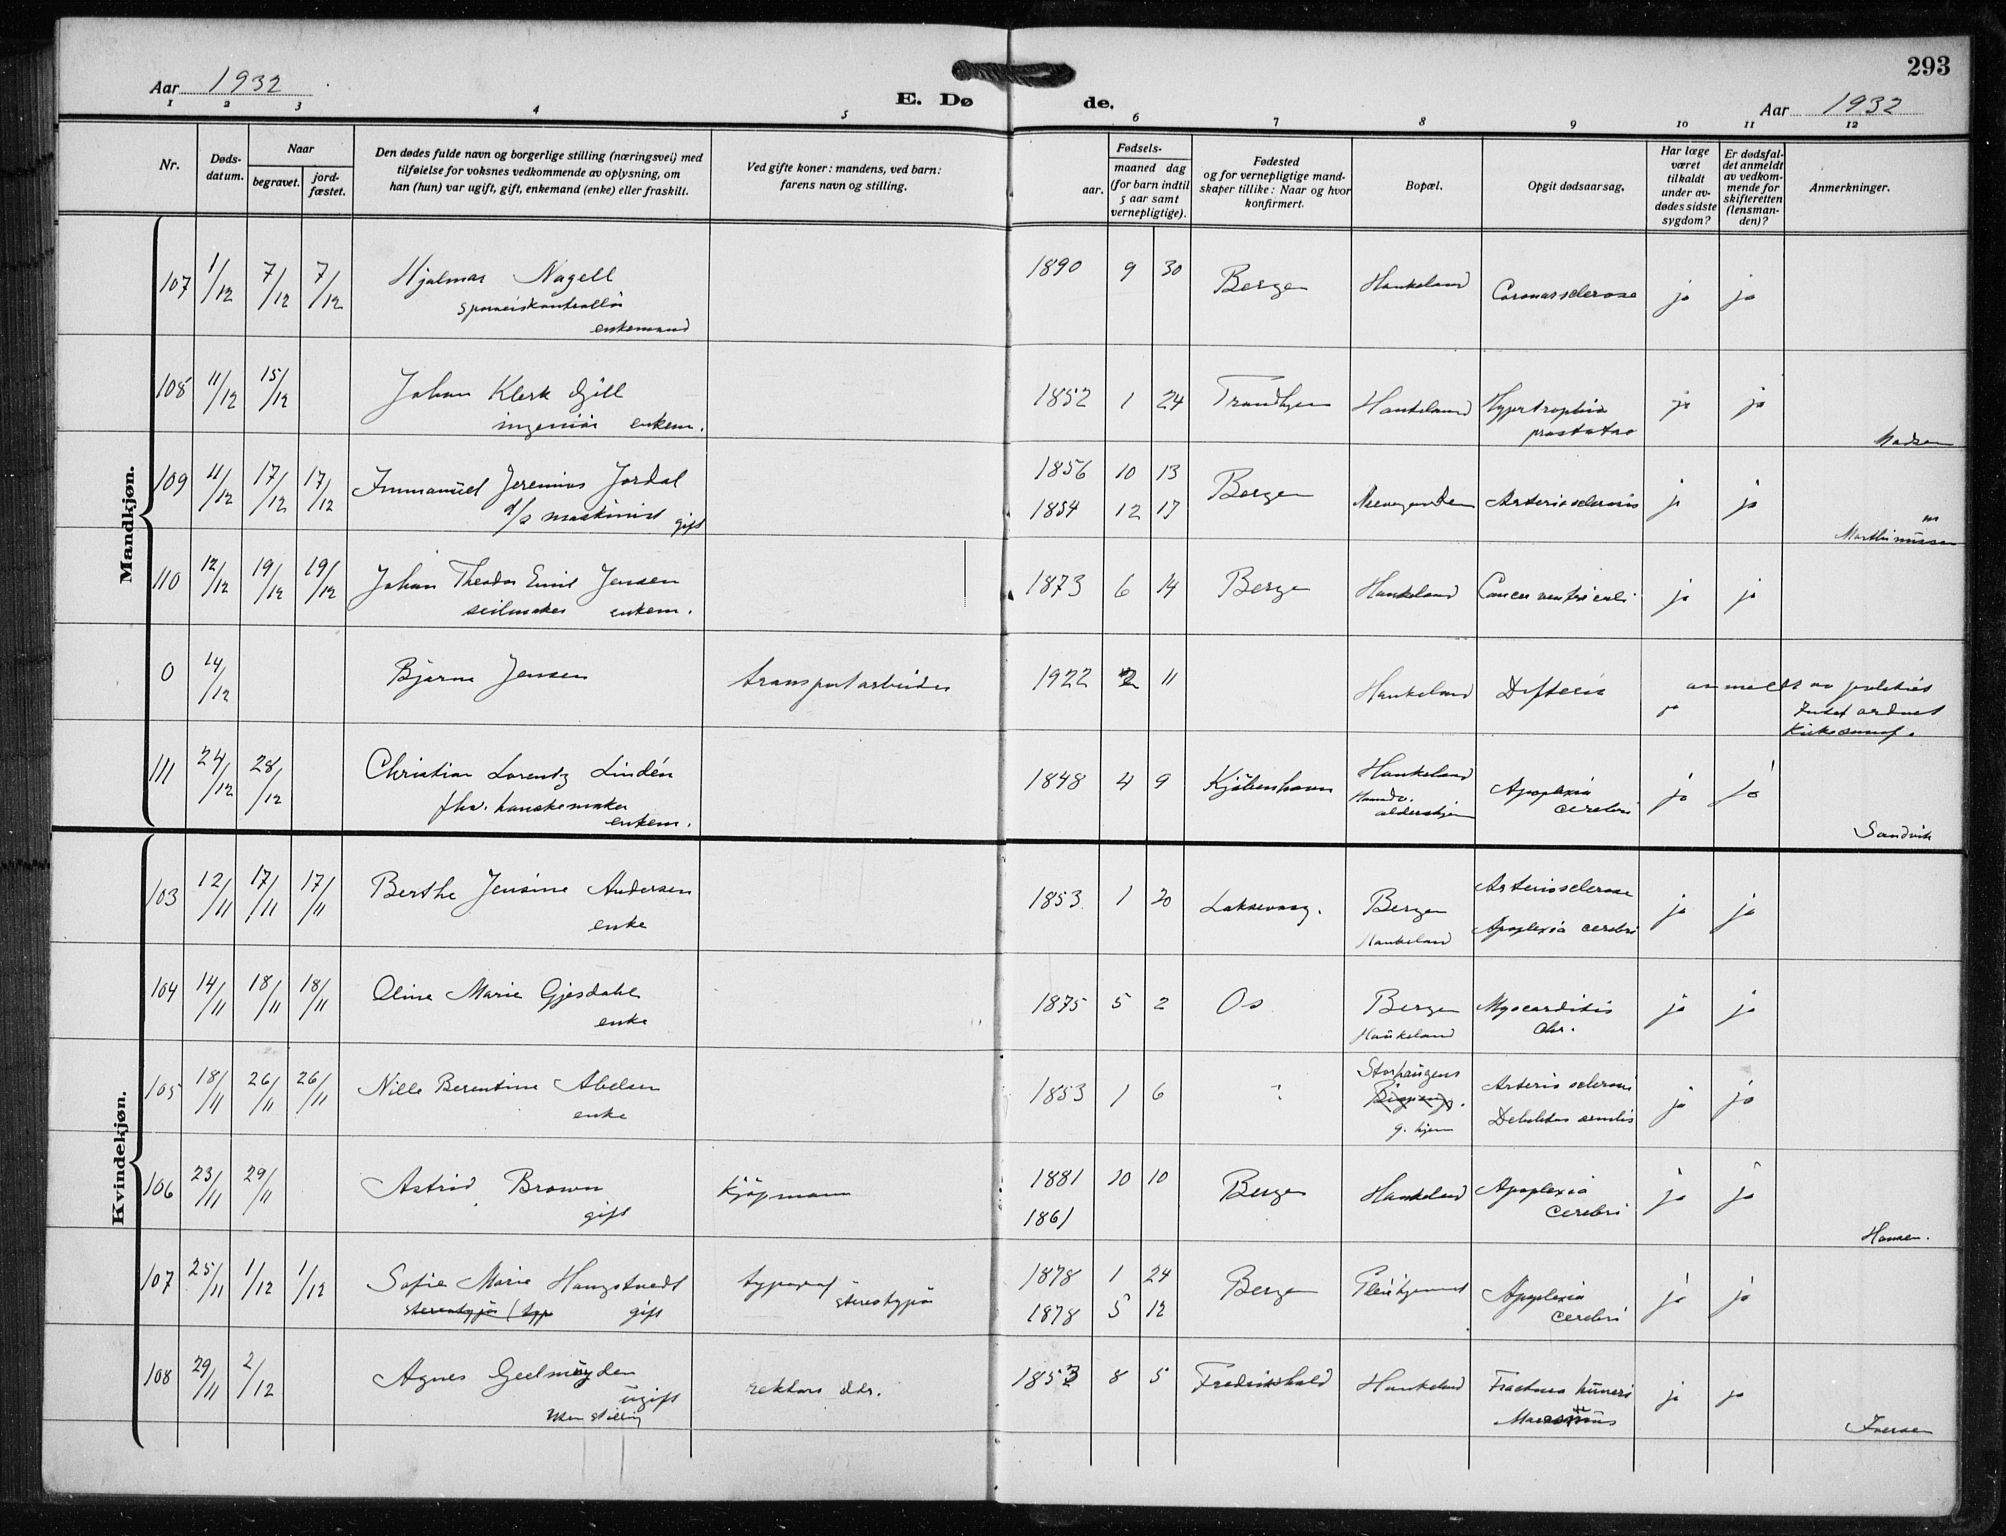 293
Aar 1932
E. Dø de.
Aar 1932
1 2 3 4 5 6 7 8 9 10 11 12
Nr.
Døds-
datum.
Naar
begravet.
jord-
fæstet.
Den dødes fulde navn og borgerlige stilling (næringsvei) med
tilføielse for voksnes vedkommende av oplysning, om
han (hun) var ugift, gift, enkemand (enke) eller fraskilt.
Ved gifte koner: mandens, ved barn:
farens navn og stilling.
Fødsels-
aar.
maaned dag
(for barn indtil
5 aar samt
vernepligtige).
Fødested
og for vernepligtige mand-
skaper tillike: Naar og hvor
konfirmert.
Bopæl.
Opgit dødsaarsag.
Har læge
været
tilkaldt
under av-
dødes sidste
sygdom?
Er dødsfal-
det anmeldt
av vedkom-
mende for
skifteretten
(lensman-
den)?
Anmerkninger.
Mandkjøn.
107 1/12 7/12 7/12 Hjalmar Nagell 1890 9 30 Bergen Haukeland Coronarsclerose ja ja
sporveiskontrollør
enkemand
108 11/12 15/12 Johan Klerk Gill 1852 1 24 Trondhjem Haukeland Hypertrophia ja ja
ingeniør enkem. prostatae
Madsen
109 11/12 17/12 17/12 Immanuel Jeremias Jordal 1856 10 13 Bergen Arteriosclerosis ja ja
d/s maskinist gift 1854 12 17
Marthinussen
110 12/12 19/12 19/12 Johan Theodor Emil Jensen 1873 6 14 Bergen Haukeland Cancer ventriculi ja ja
seilmaker enkem.
0 14/12 Bjarne Jensen transportarbeider 1922 2 11 Haukeland Difteria ja anmeldt av politiet
Intet ordnet
111 24/12 28/12 Christian Lorentz Lindén 1848 4 9 Kjøbenhavn Haukeland Apoplexia ja ja
fhv. hanskemaker aldershjem cerebri
enkem.
Sandvik
Kvindekjøn.
103 12/11 17/11 17/11 Berthe Jensine Andersen 1853 1 20 Laksevaag. Bergen Arteriosclerose ja ja
enke Haukeland Apoplexia cerebri
104 14/11 18/11 18/11 Oline Marie Gjesdahl 1875 5 2 Os Bergen Myocarditis ja ja
enke Haukeland chr.
105 18/11 26/11 26/11 Nille Berentine Abelsen 1853 1 6 Storhaugens Arteriosclerosis ja ja
enke g. hjem Debilitas senilis
106 23/11 29/11 Astrid Brown kjøpmann 1881 10 10 Bergen Haukeland Apoplexia ja ja
gift 1861 cerebri
Hansen.
107 25/11 1/12 1/12 Sofie Marie Haugstvedt typograf 1878 1 24 Bergen Pleiehjemmet Apoplexia ja ja
stereotypør (typ gift stereotypør 1878 5 12 cerebri
108 29/11 2/12 Agnes Geelmuyden rektors dtr. 1853 8 5 Fredrikshald Haukeland Fractura humeri ja ja
ugift
uten stilling Marasmus
Iversen